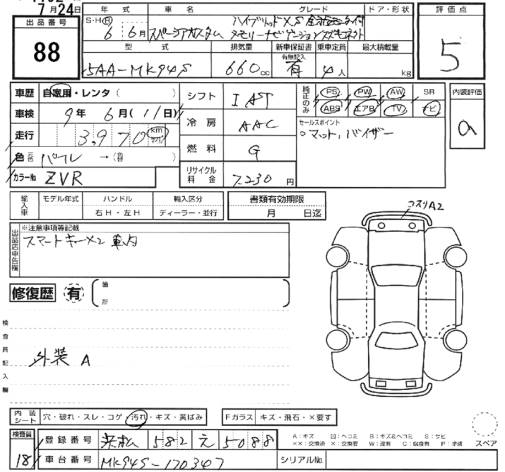 7月24日
出品番号
88
年式
車名
グレード
ドア・形状
S・H・R
6
6月
スペーシアカスタム
ハイブリッドXS
評価点
5
型式
排気量
新車保証書
乗車定員
最大積載量
有無記入
5AA-MK94S
660cc
有
4人
kg
車歴 自家用・レンタ
車検 9年 6月(11日)
走行 3,970 km
色 パープル
カラーNo ZVR
シフト IAST
冷房 AAC
燃料 G
リサイクル料金 7,230円
純正のみ
PS PW AW SR
ABS エアB TV ナビ
セールスポイント
○マット、バイザー
内装評価
a
輸入車
モデル年式
ハンドル
右H・左H
輸入区分
ディーラー・並行
書類有効期限
月 日迄
出品店申告欄
※注意事項等記載
スマートキー×2 車内
コスリA2
修復歴 有
箇所
検査員記入欄
外装 A
内装シート 穴・破れ・スレ・コゲ・汚れ・キズ・黄ばみ
Fガラス キズ・飛石・×要す
検査員
181
登録番号 浜松 582 え 5088
車台番号 MK94S-170347
シリアルNo.
A:キズ U:ヘコミ B:キズ&ヘコミ S:サビ
スペア